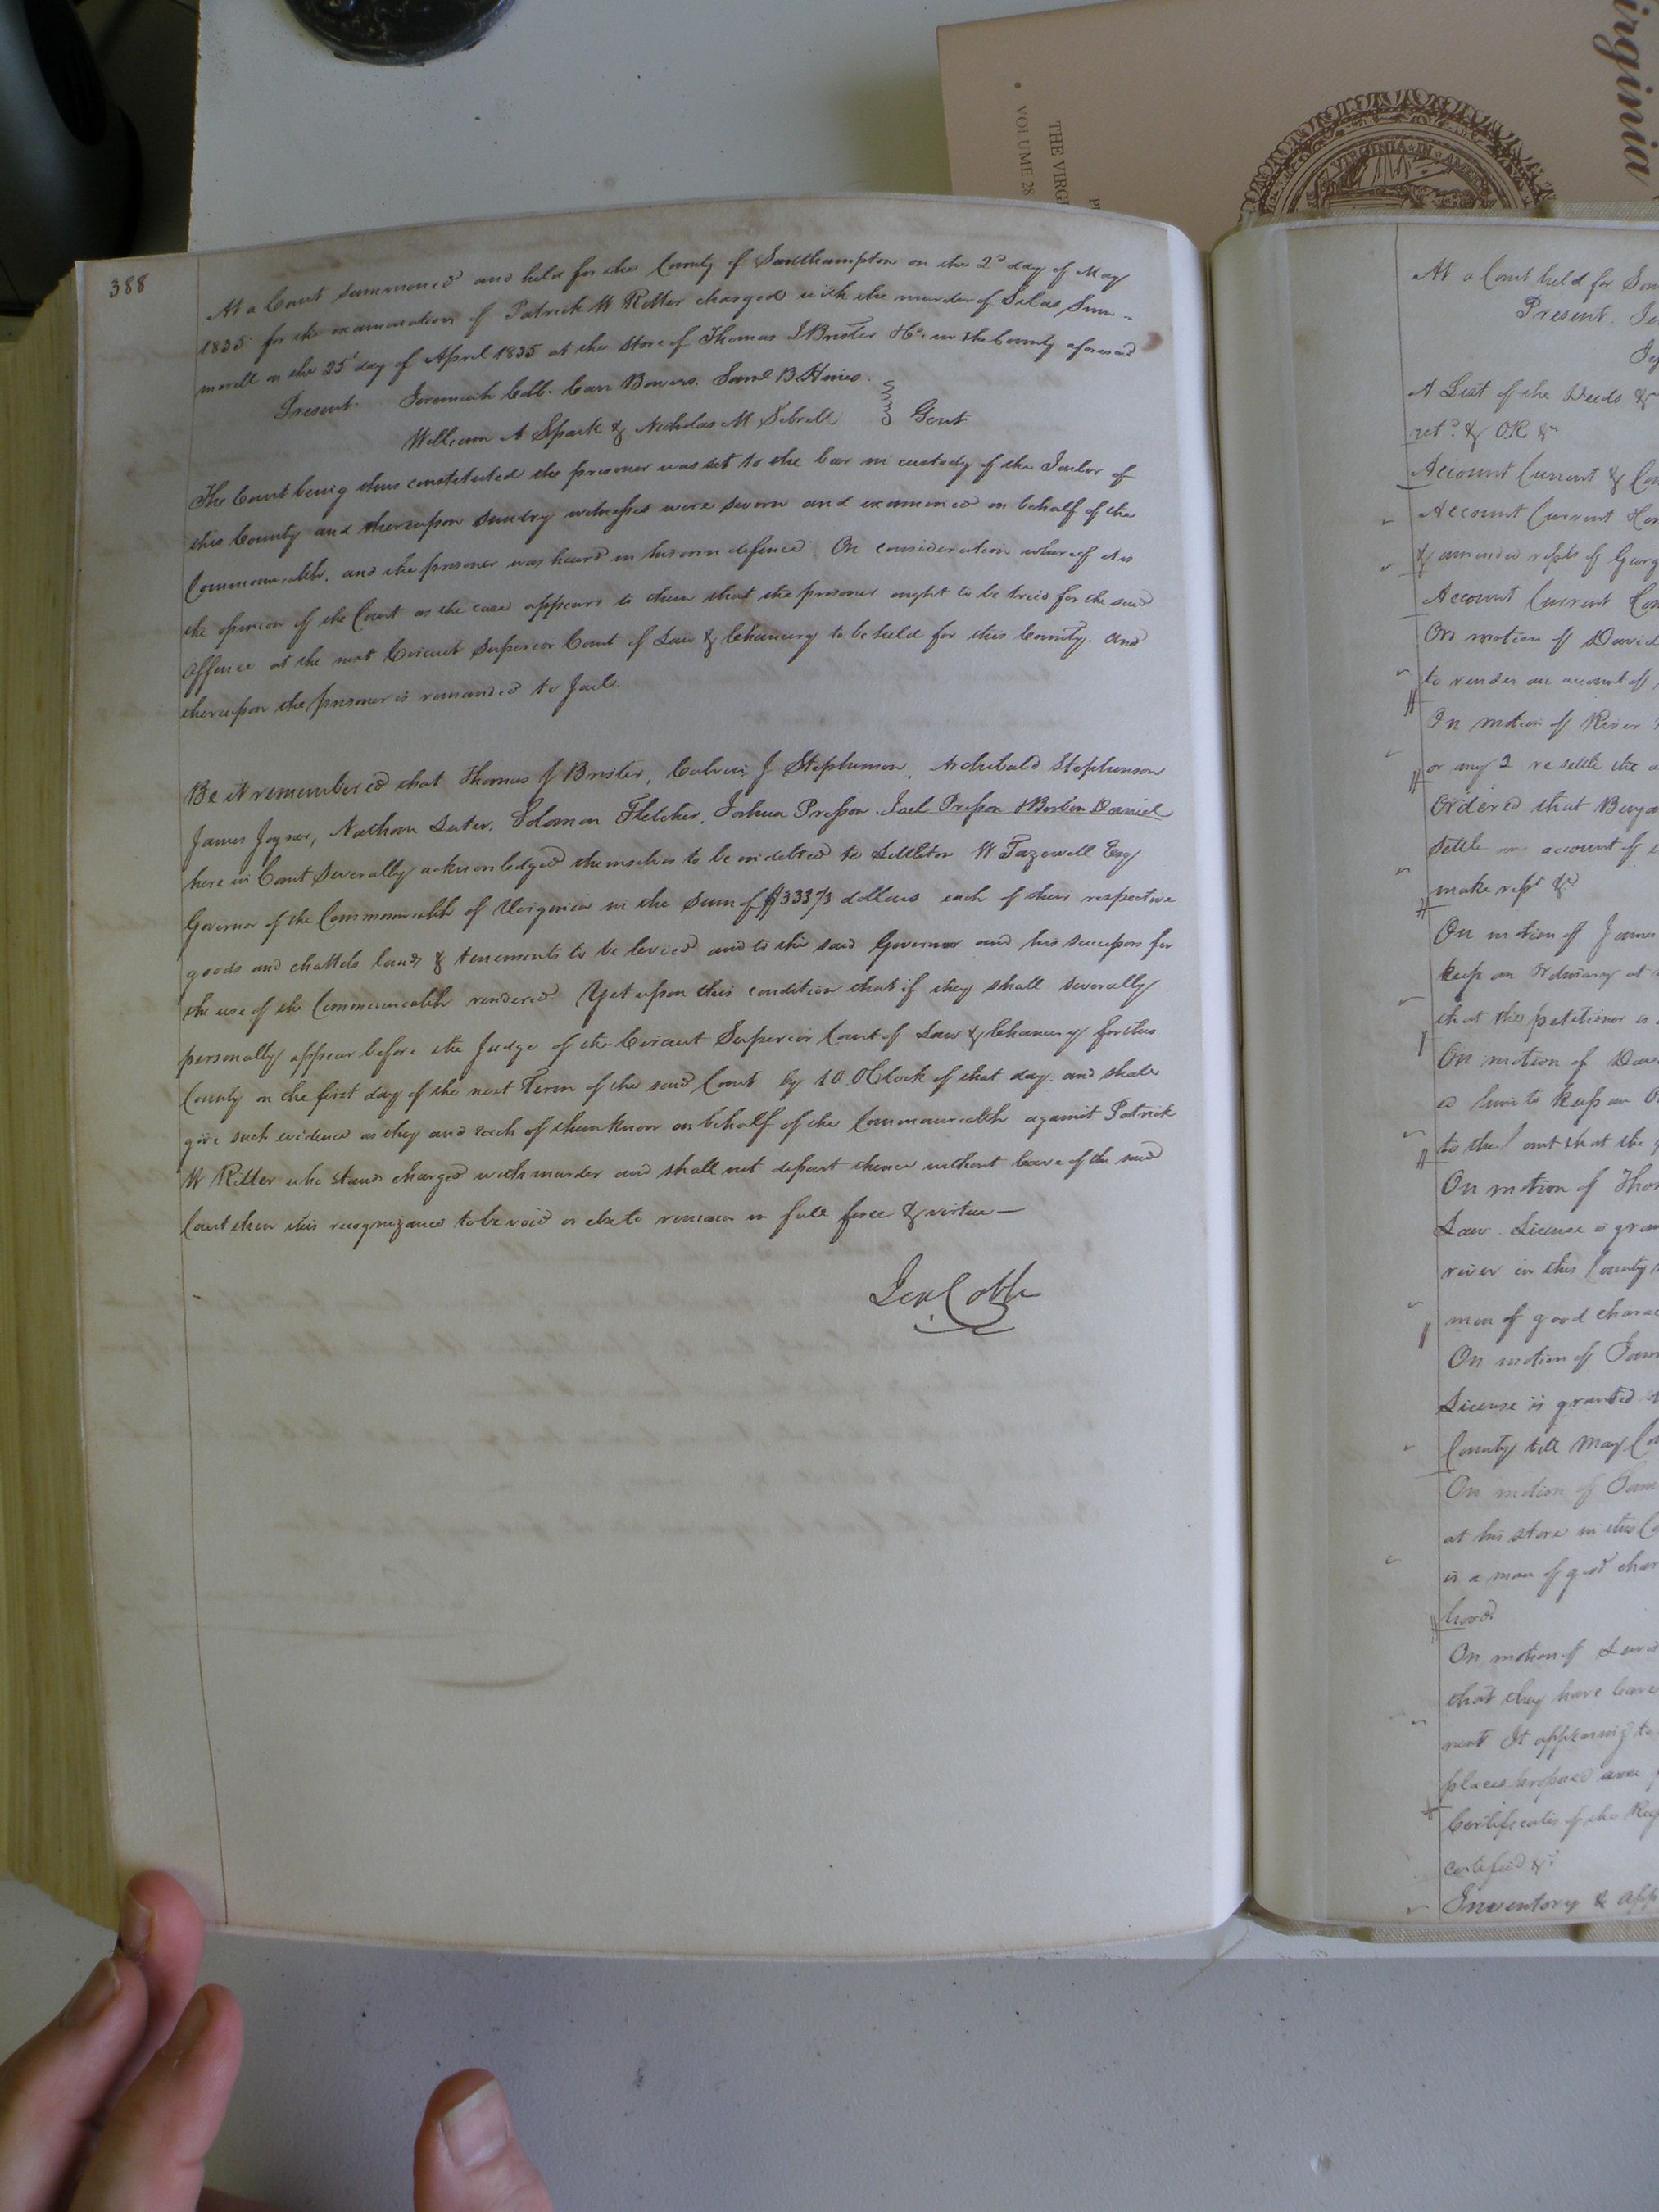 Virginia
THE VIRG
VOLUME 28
VIRGINIA IN
388
At a Court summoned and held for the County of Southampton on the 2d day of May
1835 for the examination of Patrick W Ritter charged with the murder of Silas Sum-
merell on the 25 day of April 1835 at the store of Thomas J Brister in the County aforesaid
Present. Jeremiah Cobb. Carr Bowers. Saml B Hines.
William A Spark & Nicholas M Sebrell Gent
The Court being thus constituted the prisoner was set to the bar in custody of the Jailor of
this County and thereupon sundry witnesses were sworn and examined on behalf of the
Commonwealth, and the prisoner was heard in his own defence. On consideration whereof it is
the opinion of the Court as the case appears to them that the prisoner ought to be tried for the said
offence at the next Circuit Superior Court of Law & Chancery to be held for this County. And
thereupon the prisoner is remanded to Jail.
Be it remembered that Thomas J Brister, Calvin J Stephenson, Archibald Stephenson
James Joyner, Nathan Luter, Solomon Fletcher, Joshua Presson, Joel Presson & Burton Daniel
here in Court severally acknowledged themselves to be indebted to Littleton W Tazewell Esq
Governor of the Commonwealth of Virginia in the sum of $333⅓ dollars each of their respective
goods and chattels lands & tenements to be levied and to the said Governor and his successors for
the use of the Commonwealth rendered. Yet upon this condition that if they shall severally
personally appear before the Judge of the Circuit Superior Court of Law & Chancery for this
County on the first day of the next Term of the said Court by 10 OClock of that day. and shall
give such evidence as they and each of them know on behalf of the Commonwealth against Patrick
W Ritter who stands charged with murder and shall not depart thence without leave of the said
Court then this recognizance to be void or else to remain in full force & virtue —
Jer Cobb
At a Court held for
Present.
A List of the Deeds &
retd & OR &
Account Current &
Account Current
& amended repts of Georg
Account Current
On motion of David
to render an account of
On motion of River
or any 2 re settle the
Ordered that Benja
Settle an account of
make rept &c
On motion of James
keep an ordinary at
that the petitioner is
On motion of
ed him to keep an
to the Court that the
On motion of Tho
Law. License is gran
river in this County
man of good charac
On motion of
License is granted
County till May
On motion of
at his store in this
is a man of good char
hood.
On motion of Lewis
that they have leave
next It appearing to
places proposed are
Certificates of the Reg
certified &c
Inventory & app